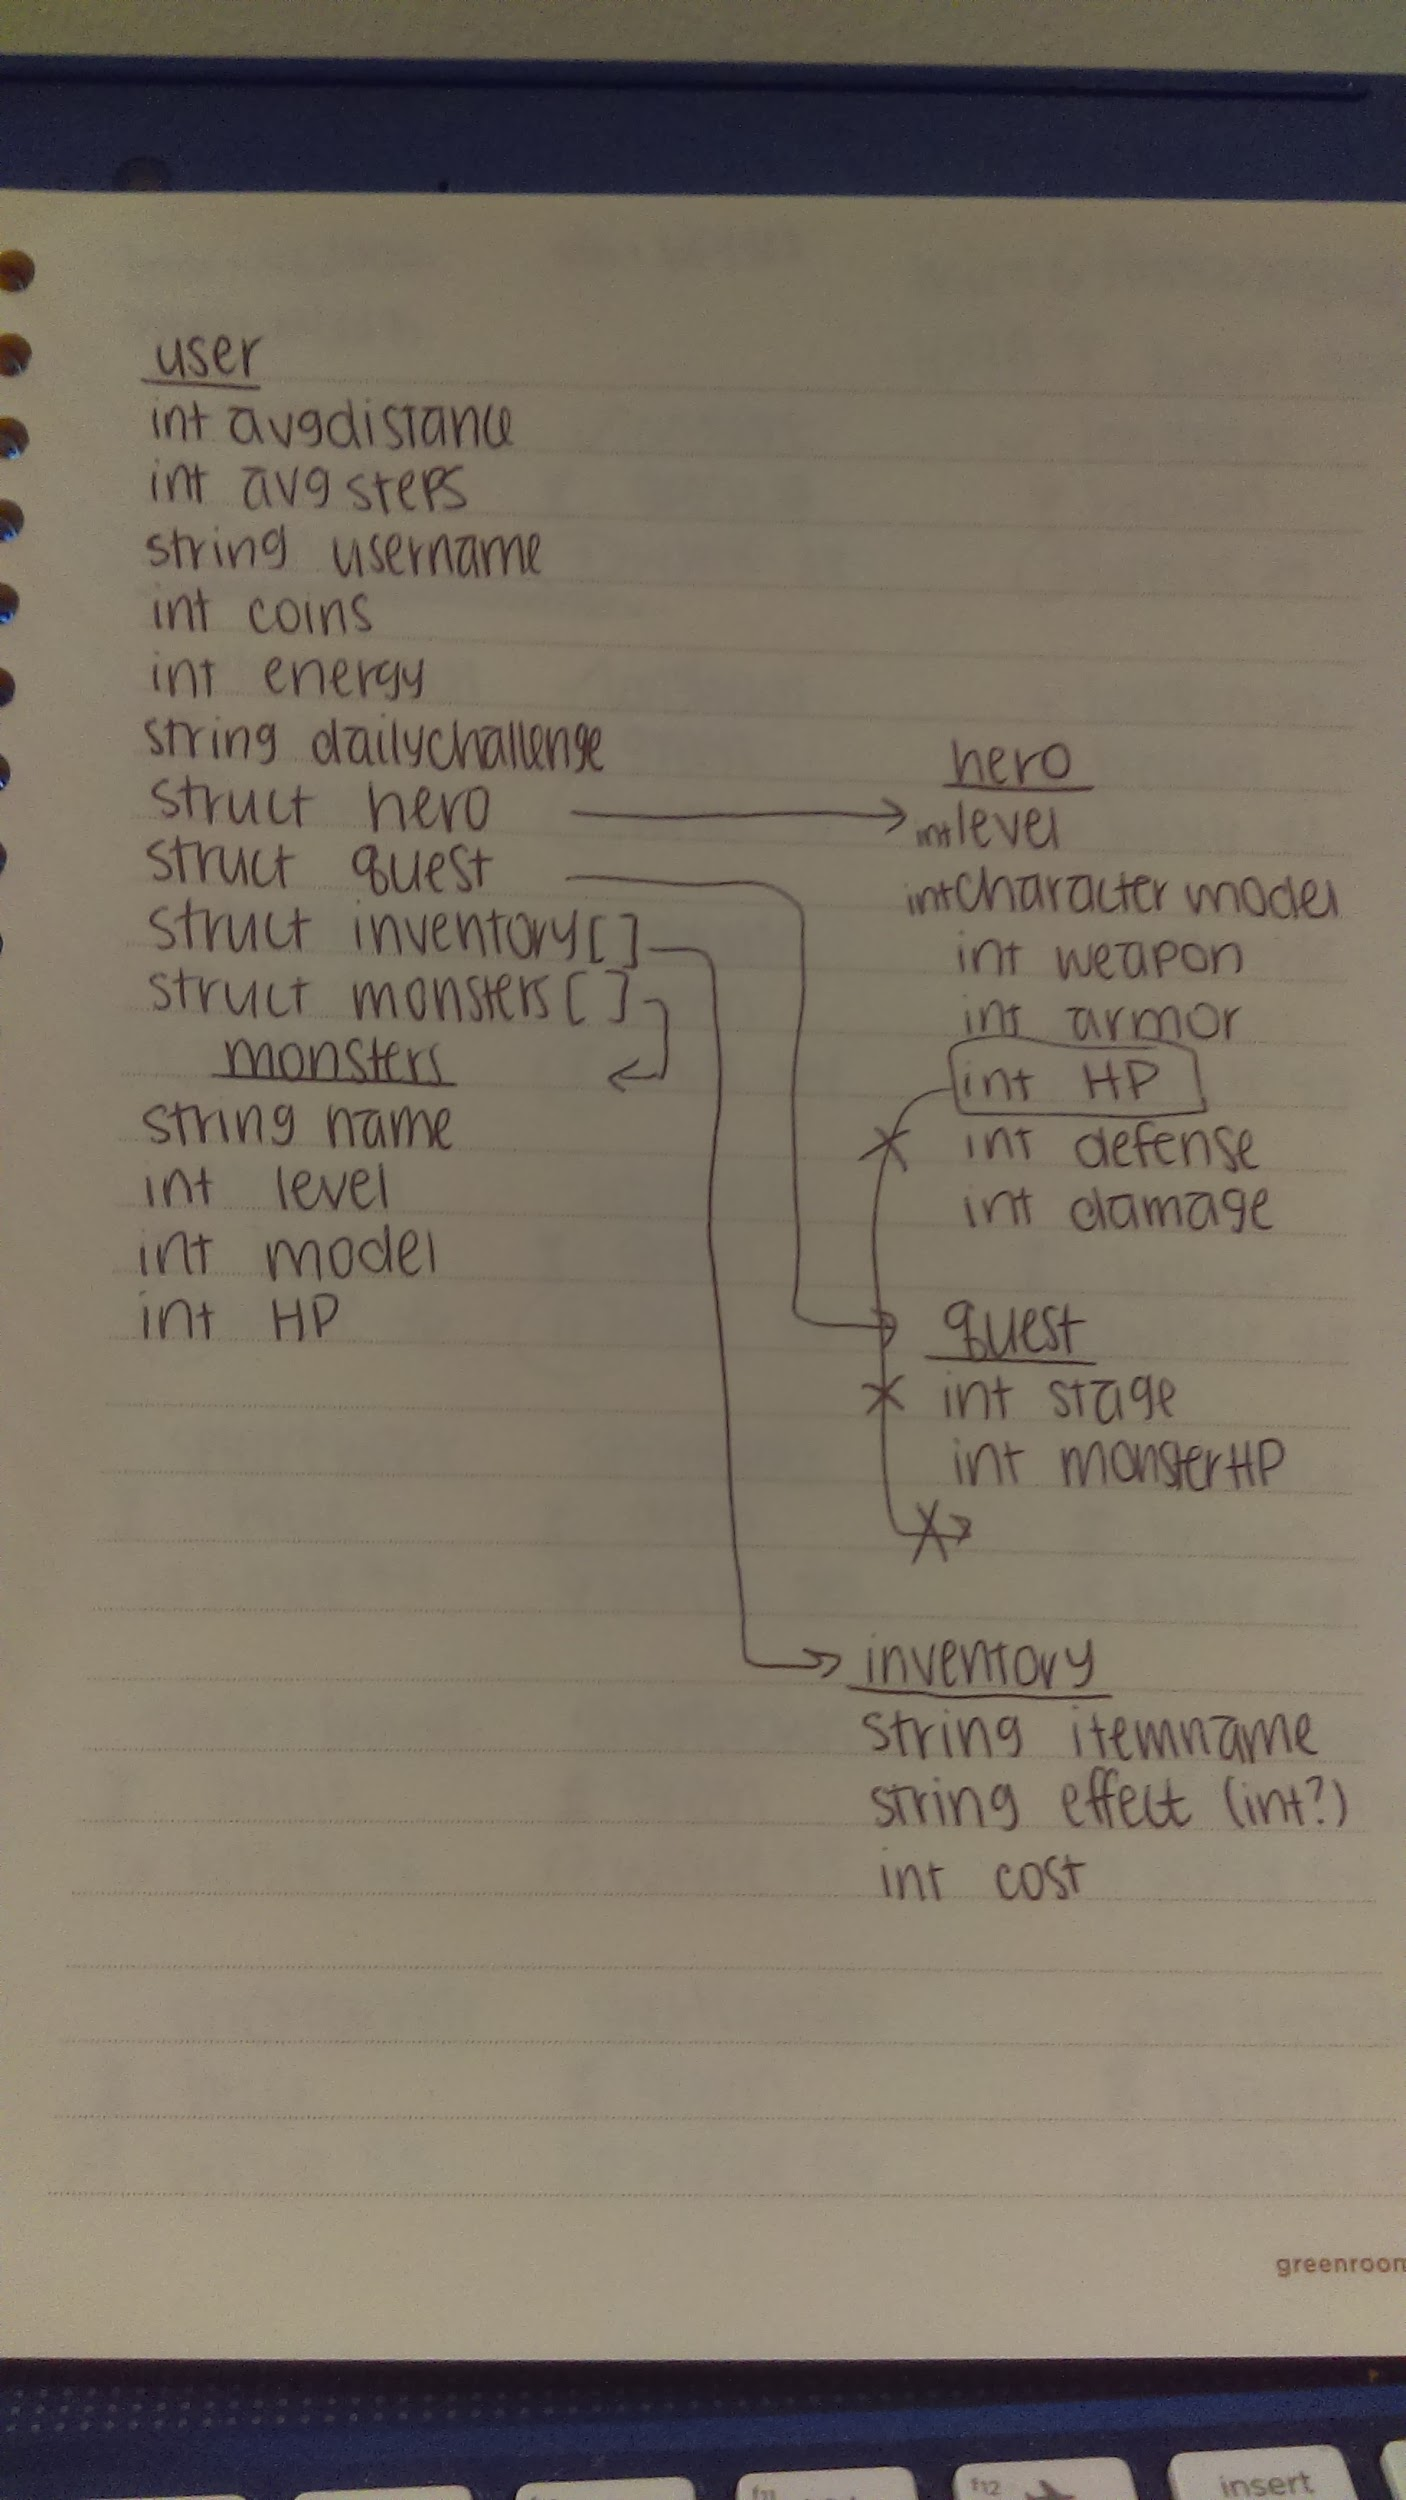 user
int avgdistance
int avg steps
string username
int coins
int energy
string dailychallenge
struct hero
struct quest
struct inventory[]
struct monsters[]
monsters
string name
int level
int model
int HP
hero
int level
int character model
int weapon
int armor
int HP
int defense
int damage
quest
int stage
int monsterHP
inventory
string itemname
string effect (int?)
int cost
greenroom
f11
f12
insert